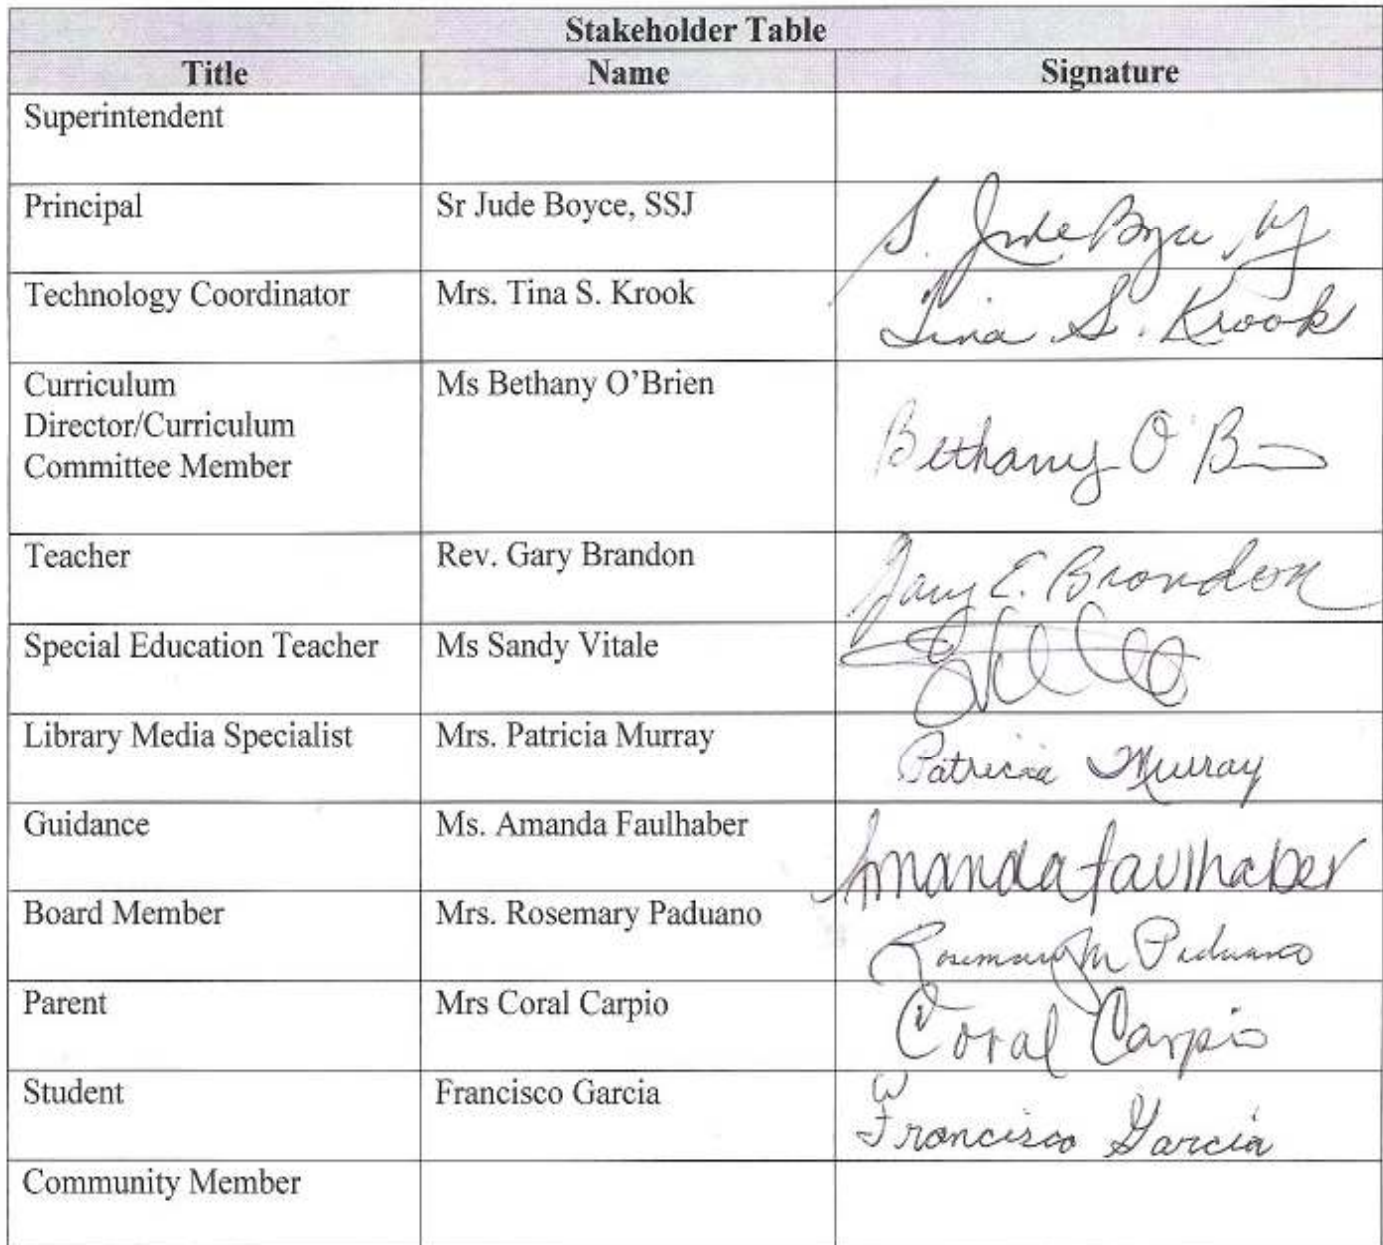 Stakeholder Table
Title Name Signature
Superintendent
Principal Sr Jude Boyce, SSJ S. Jude Boyce
Technology Coordinator Mrs. Tina S. Krook Tina S. Krook
Curriculum Ms Bethany O’Brien
Director/Curriculum
Committee Member Bethany O'B
Teacher Rev. Gary Brandon Gary E. Brandon
Special Education Teacher Ms Sandy Vitale
Library Media Specialist Mrs. Patricia Murray Patricia Murray
Guidance Ms. Amanda Faulhaber Amanda Faulhaber
Board Member Mrs. Rosemary Paduano Rosemary M Paduano
Parent Mrs Coral Carpio Coral Carpio
Student Francisco Garcia Francisco Garcia
Community Member